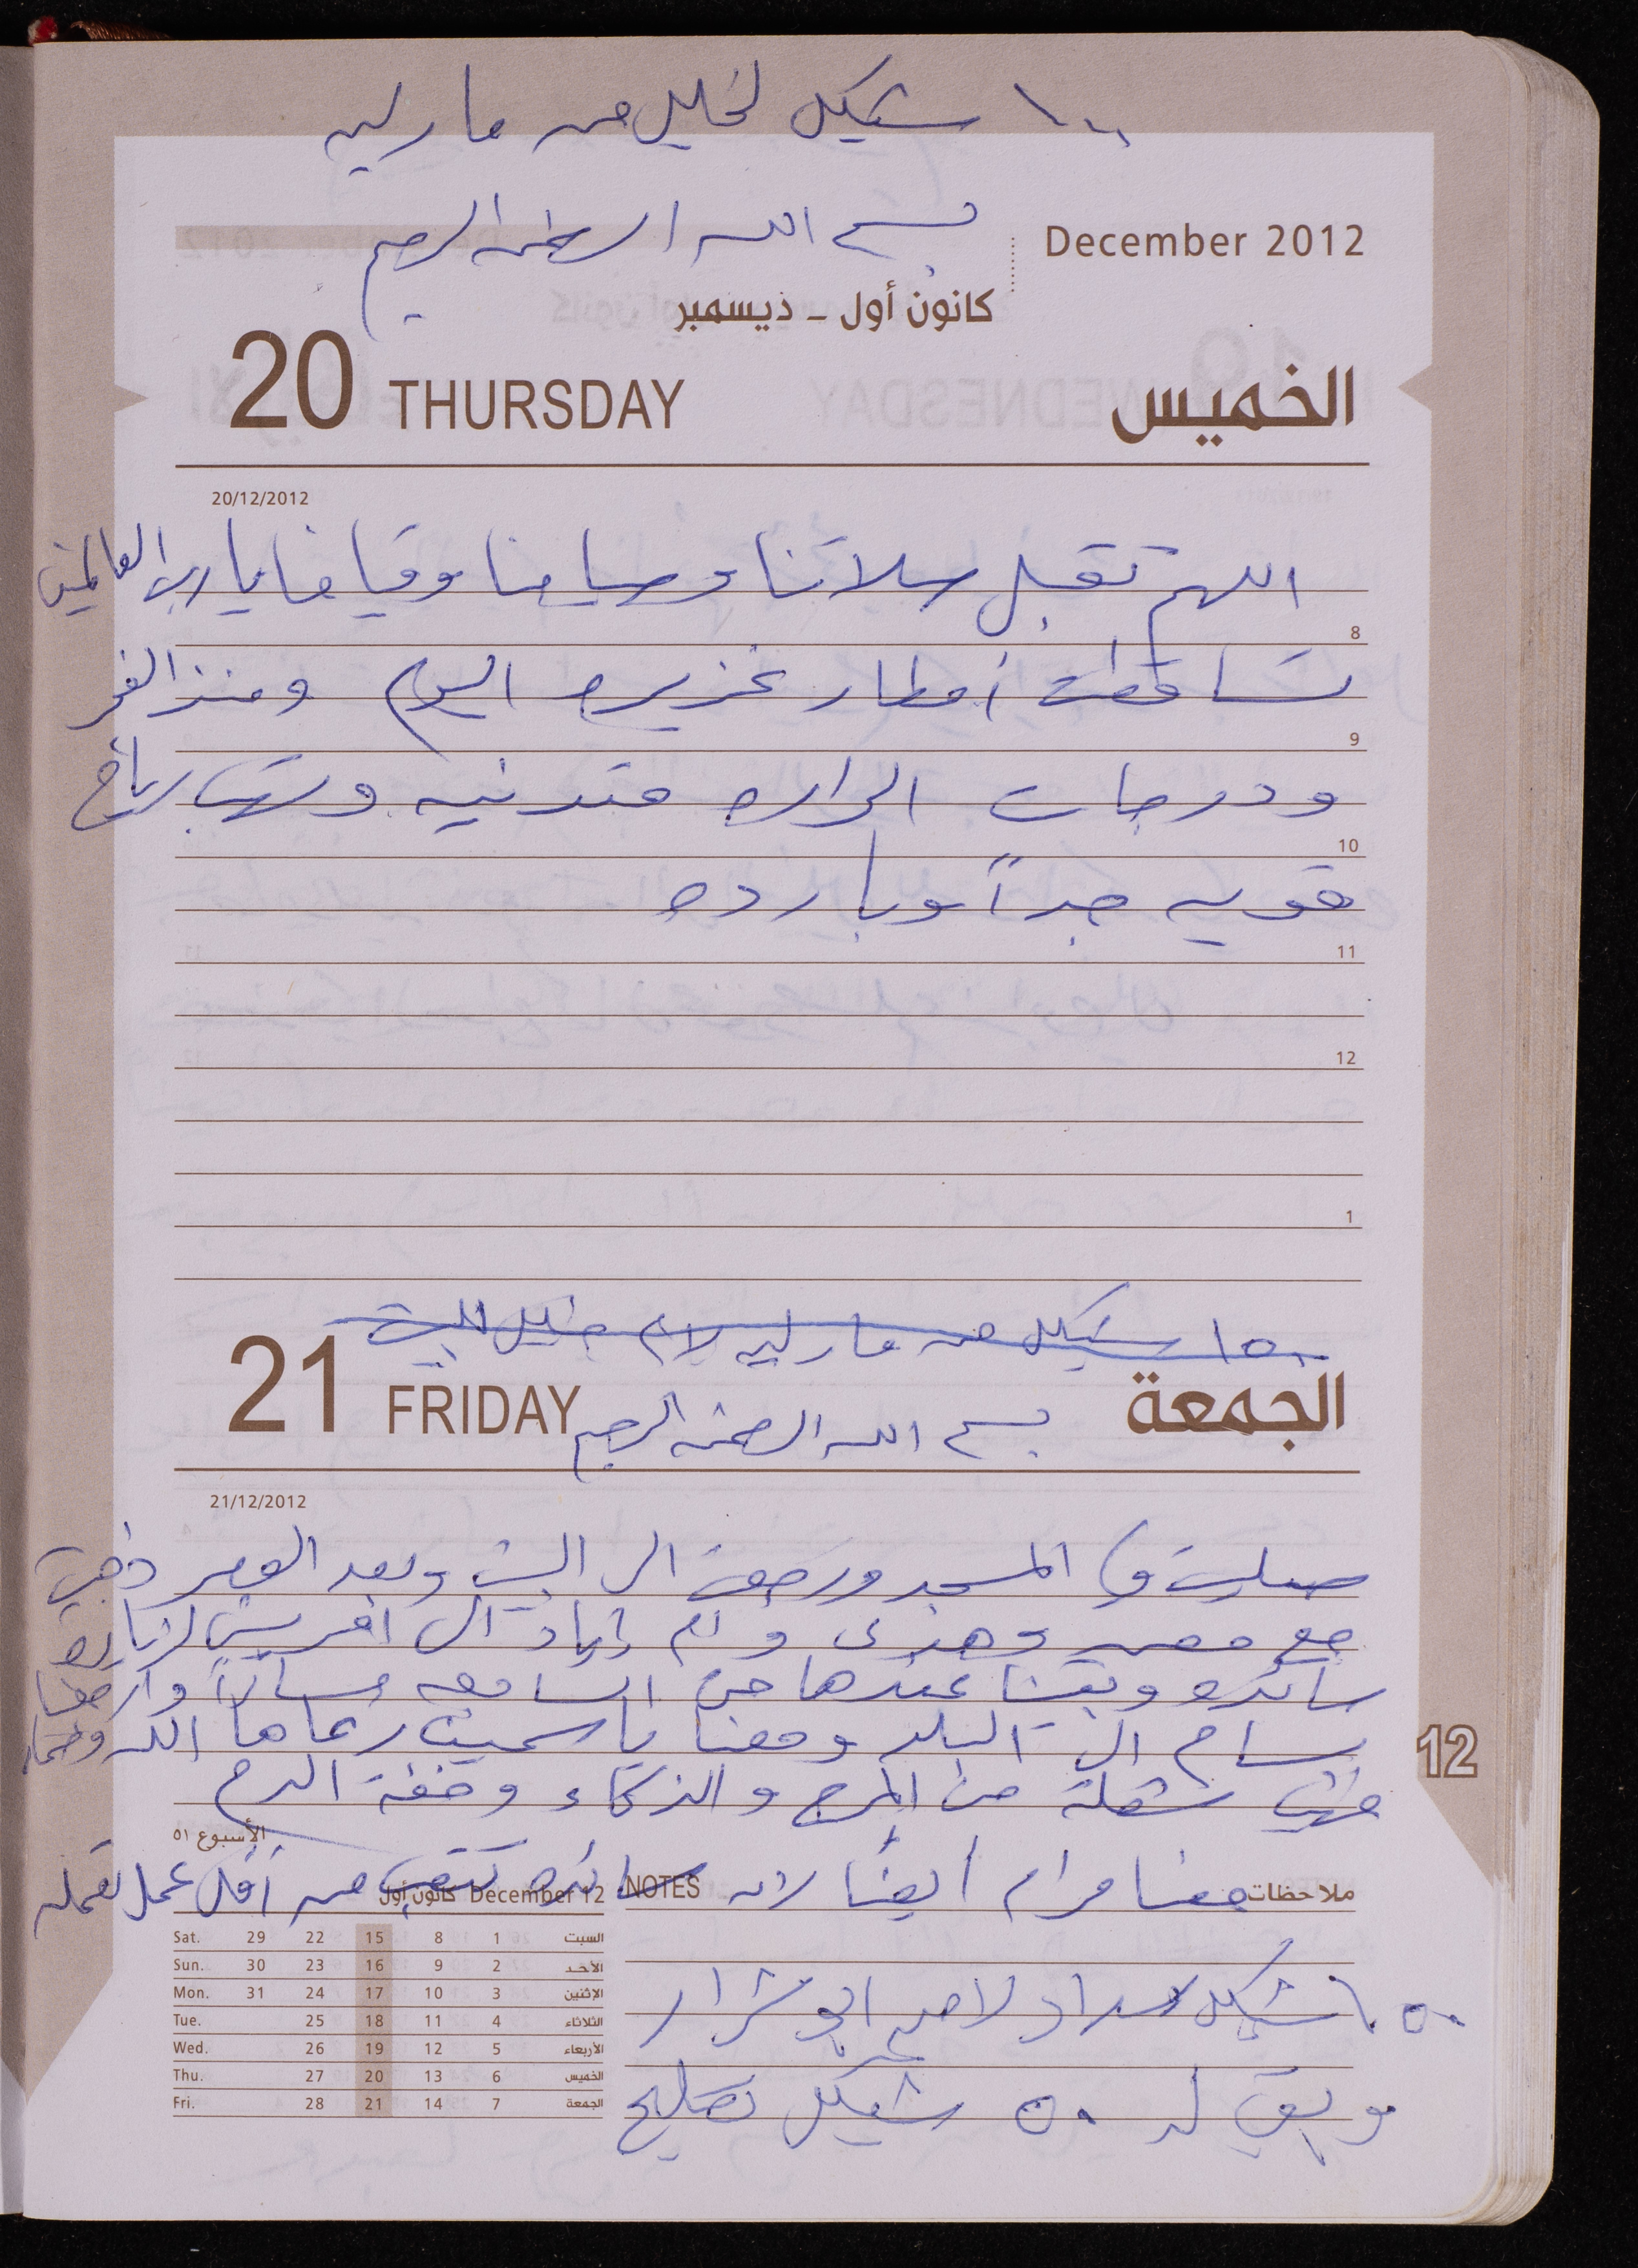 ١٠٠ شيكل لخليل من مارلين
بسم الله الرحمن الرحيم
December 2012
كانون أول - ديسمبر
20 THURSDAY الخميس
20/12/2012
اللهم تقبل سلاتنا وسيامنا وقيامنا يا رب العالمين
8
تساقطت أمطار غزيره اليوم ومنذ الفجر
9
ودرجات الحراره متدنيه وتهب رياح
10
قويه جداً وبارده
11
12
1
١٥٠ شيكل من مارلين لام خليل للبيت
21 FRIDAY الجمعة
بسم الله الرحمن الرحيم
21/12/2012
صليت في المسجد ورجعت الى البيت وبعد العصر ذهبت
مع معين وهدى و ام زياد الى افريش لزيارة
سائده وبقينا عندها حتى الساعه مساءً وارجعنا
بسام الى البلد ومعنا ياسمين رعاها الله وحماها
فهي شعلة من المرح والذكاء وخفة الدم
12
الأسبوع ٥١
ملاحظات NOTES
معنا مرام أيضاً لان سائده تتعب من أقل عمل تعمله
December 12 كانون أول
Sat. 29 22 15 8 1 السبت
Sun. 30 23 16 9 2 الأحد
Mon. 31 24 17 10 3 الإثنين
Tue. 25 18 11 4 الثلاثاء
Wed. 26 19 12 5 الأربعاء
Thu. 27 20 13 6 الخميس
Fri. 28 21 14 7 الجمعة
شيكل سداد لاحمد ابو شرار
و بقي له ٥٠ شيكل تصليح